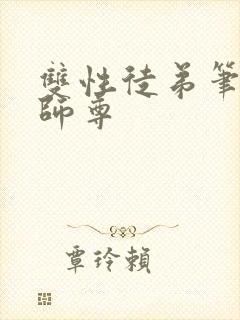 雙性徒弟筆
師尊
覃玲賴